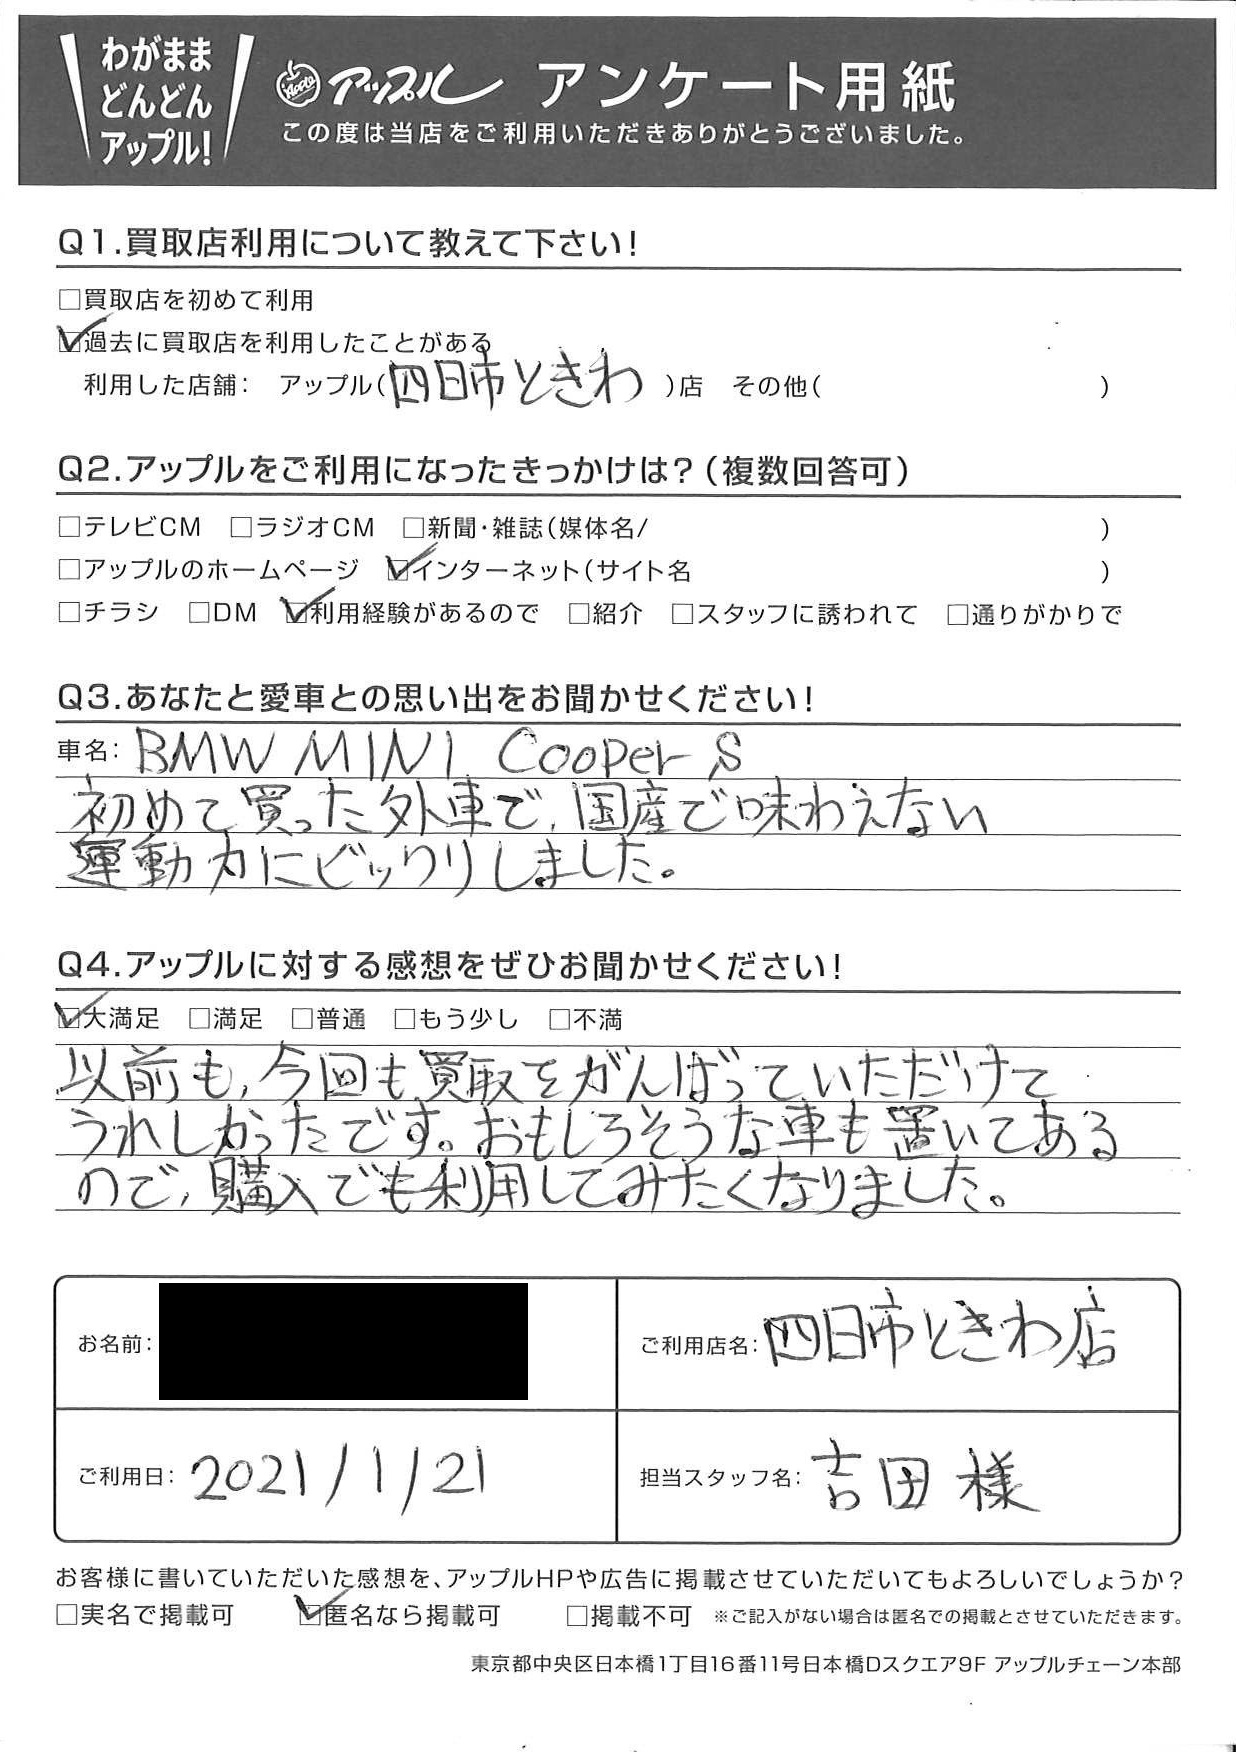 わがまま
どんどん
アップル!
Apple アップル アンケート用紙
この度は当店をご利用いただきありがとうございました。
Q1.買取店利用について教えて下さい!
□買取店を初めて利用
☑過去に買取店を利用したことがある
利用した店舗: アップル(四日市ときわ)店 その他( )
Q2.アップルをご利用になったきっかけは?(複数回答可)
□テレビCM □ラジオCM □新聞・雑誌(媒体名/ )
□アップルのホームページ ☑インターネット(サイト名 )
□チラシ □DM ☑利用経験があるので □紹介 □スタッフに誘われて □通りがかりで
Q3.あなたと愛車との思い出をお聞かせください!
車名: BMW MINI Cooper S
初めて買った外車で、国産で味わえない
運動力にビックリしました。
Q4.アップルに対する感想をぜひお聞かせください!
☑大満足 □満足 □普通 □もう少し □不満
以前も、今回も買取をがんばっていただけて
うれしかったです。おもしろそうな車も置いてある
ので、購入でも利用してみたくなりました。
お名前: ご利用店名: 四日市ときわ店
ご利用日: 2021/1/21 担当スタッフ名: 吉田様
お客様に書いていただいた感想を、アップルHPや広告に掲載させていただいてもよろしいでしょうか?
□実名で掲載可 ☑匿名なら掲載可 □掲載不可 ※ご記入がない場合は匿名での掲載とさせていただきます。
東京都中央区日本橋1丁目16番11号日本橋Dスクエア9F アップルチェーン本部